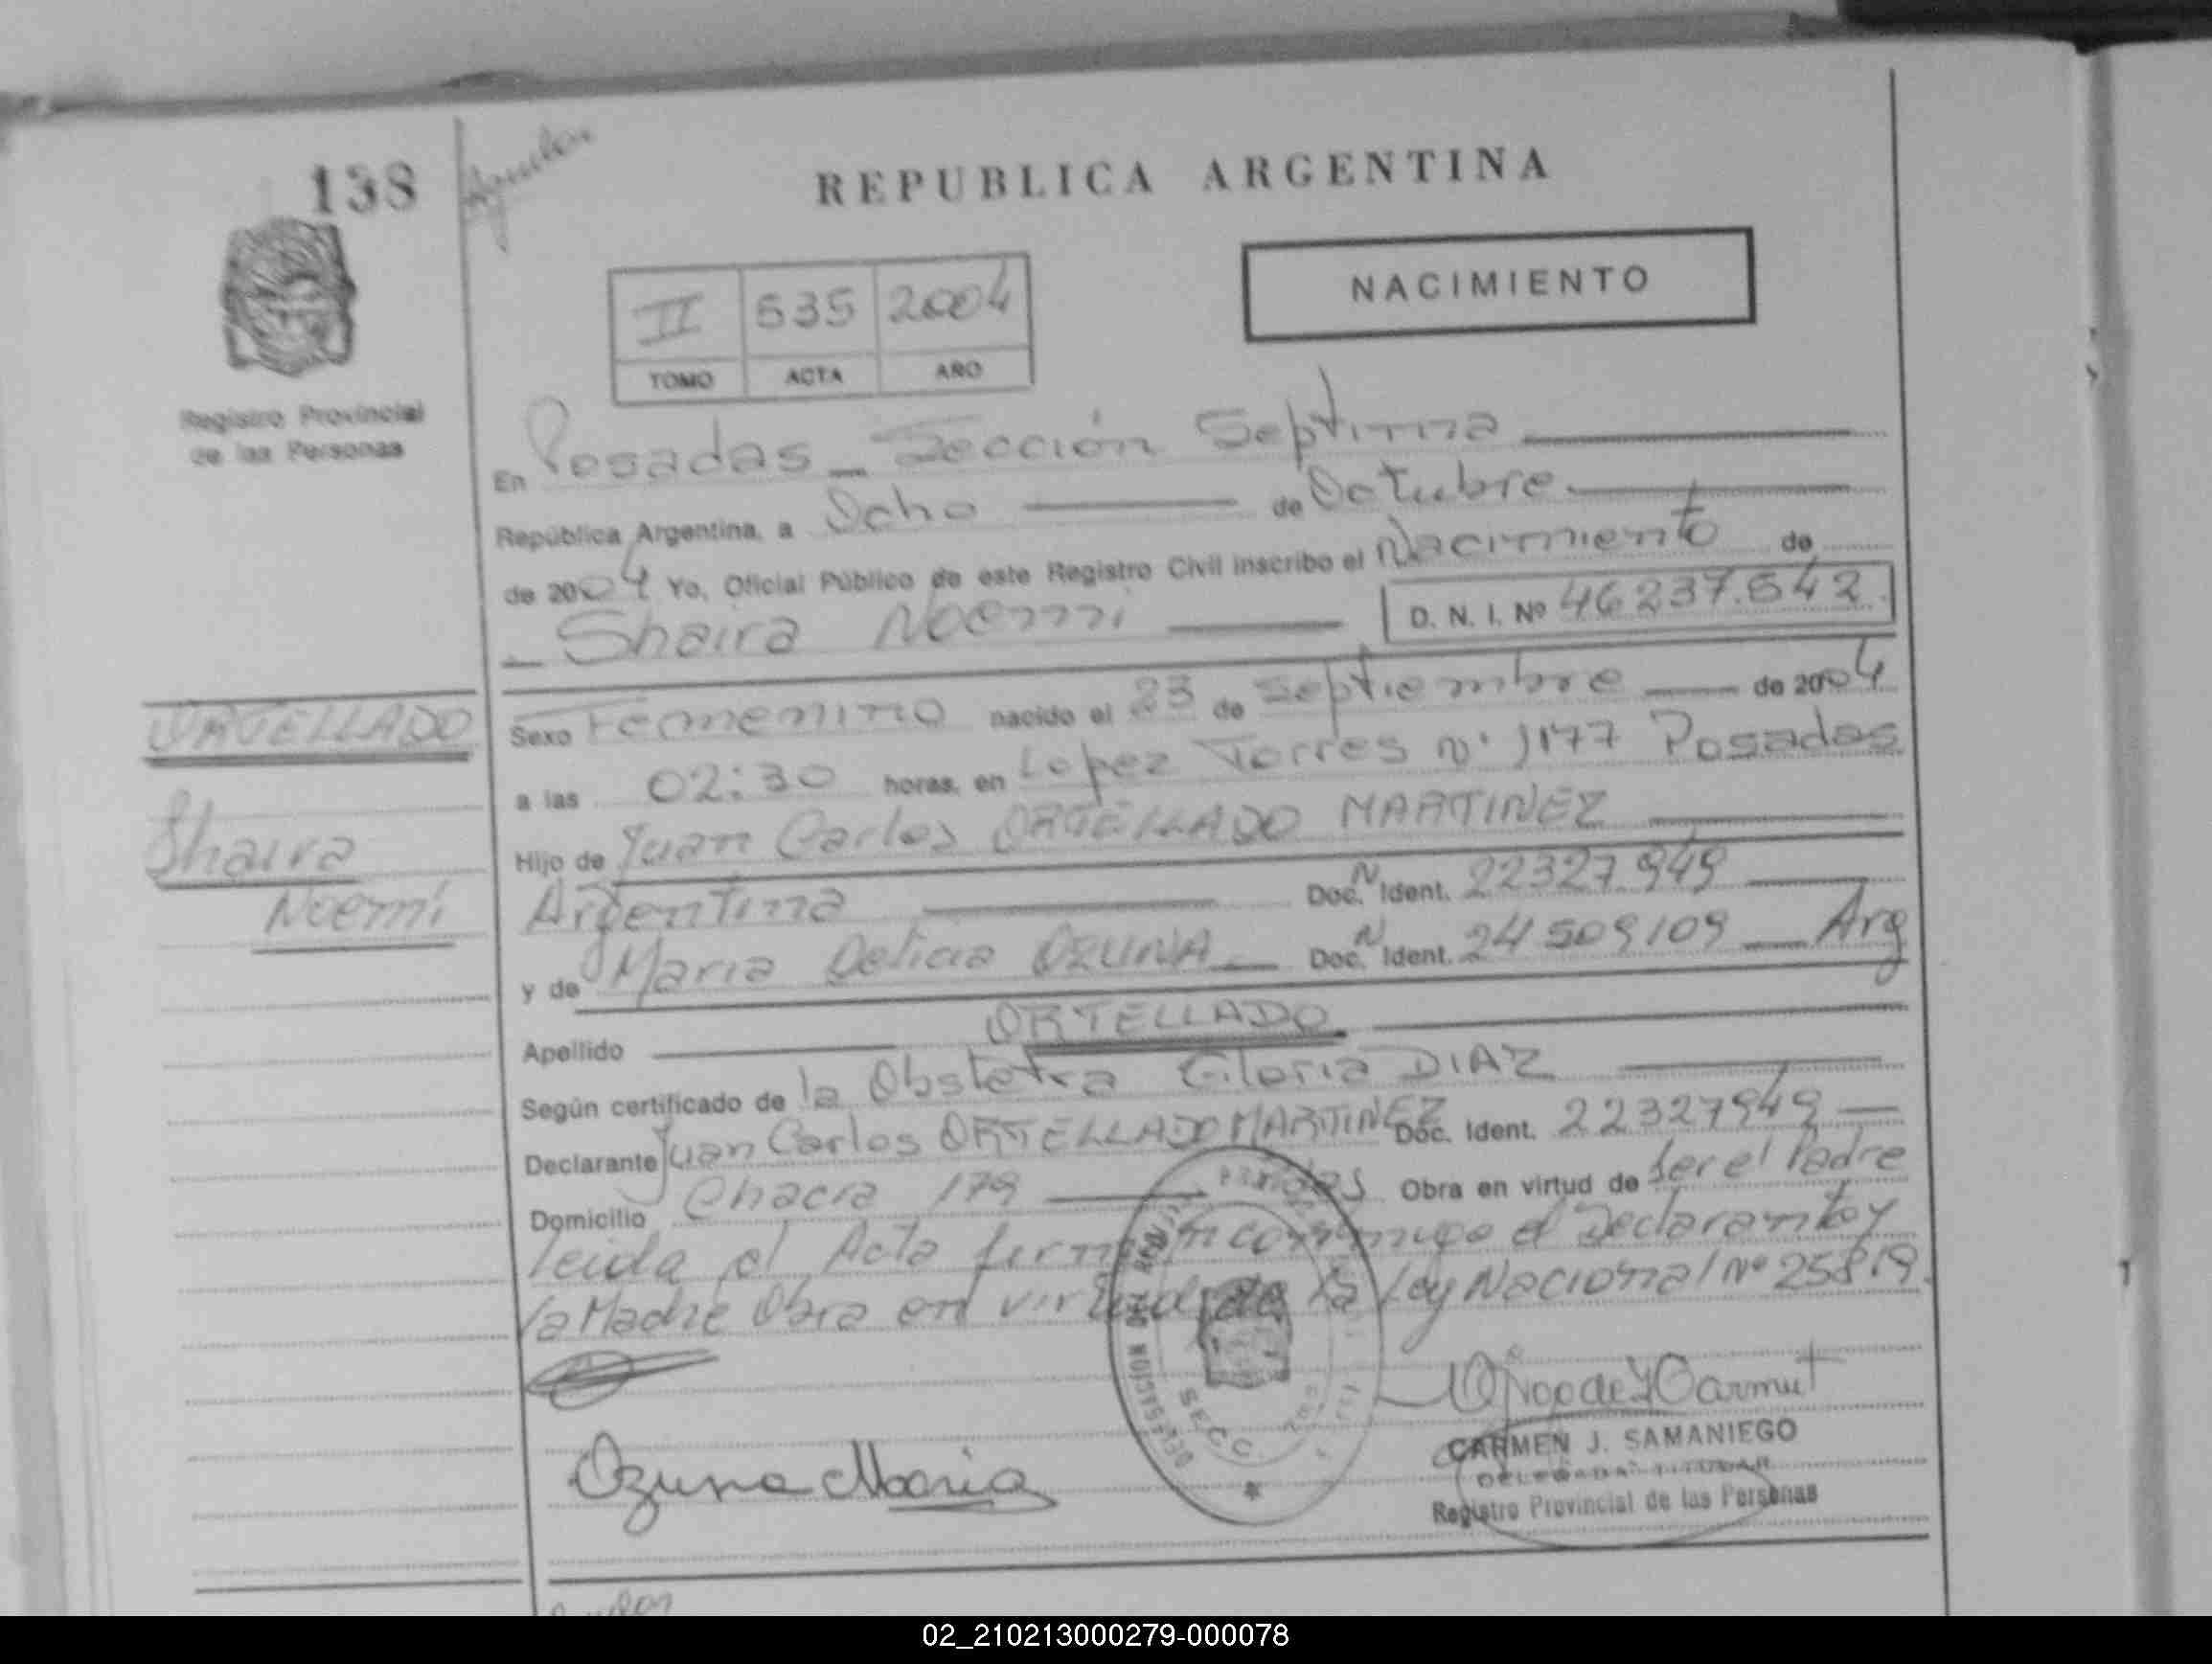 138
REPUBLICA ARGENTINA
NACIMIENTO
II 535 2004
TOMO ACTA AÑO
Registro Provincial
de las Personas
En Posadas - Sección Septima
República Argentina, a Ocho de Octubre
de 2004 Yo, Oficial Público de este Registro Civil inscribo el Nacimiento de
Shaira Noemi D. N. I. Nº 46237.542
ORTELLADO
Shaira
Noemí
Sexo Femenino nacido el 23 de Septiembre de 2004
a las 02:30 horas, en Lopez Torres nº 1177 Posadas
Hijo de Juan Carlos ORTELLADO MARTINEZ
Argentina Doc. N Ident. 22327.949
y de Maria Delicia OZUNA Doc. N Ident. 24509109 Arg
Apellido ORTELLADO
Según certificado de la Obstetra Gloria DIAZ
Declarante Juan Carlos ORTELLADO MARTINEZ Doc. Ident. 22327949
Domicilio Chacra 179 Obra en virtud de ser el Padre
leida el Acta firman conmigo el Declarante y
la Madre Obra en virtud de la Ley Nacional Nº 25819.
Ozuna Maria
CARMEN J. SAMANIEGO
DELEGADA TITULAR
Registro Provincial de las Personas
02_210213000279-000078